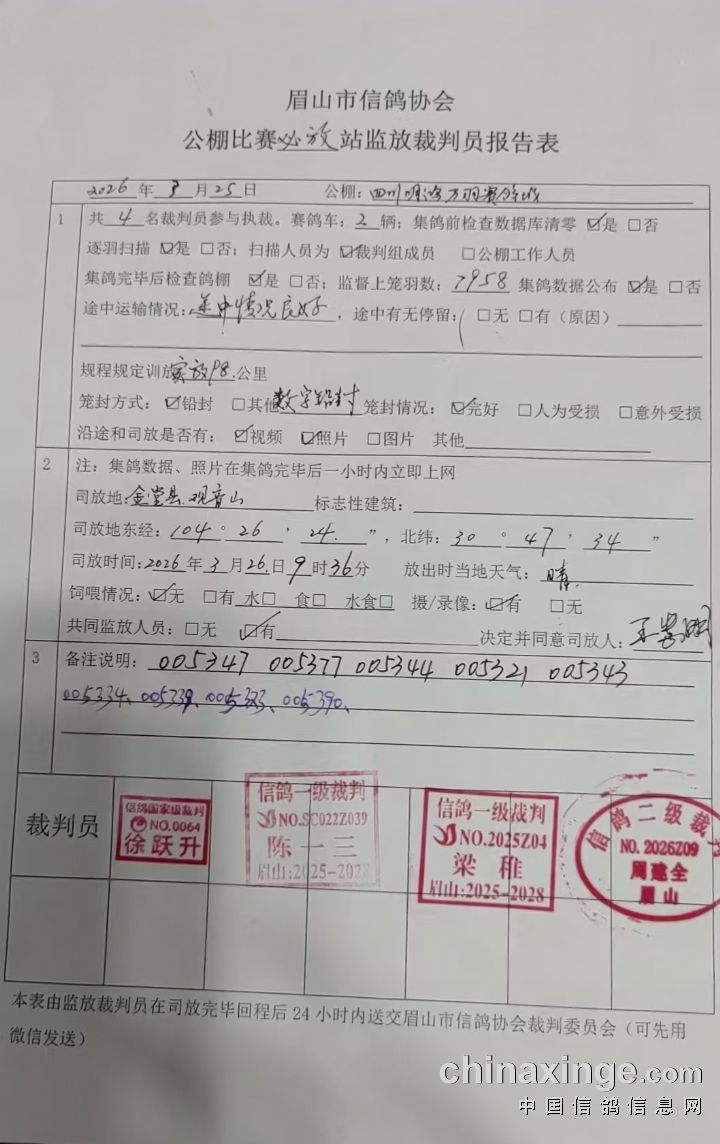 眉山市信鸽协会
公棚比赛必放站监放裁判员报告表
2026年3月25日 公棚：四川
1 共4名裁判员参与执裁。赛鸽车：2辆；集鸽前检查数据库清零 ☑是 □否
逐羽扫描 ☑是 □否；扫描人员为 ☑裁判组成员 □公棚工作人员
集鸽完毕后检查鸽棚 ☑是 □否；监督上笼羽数：7958 集鸽数据公布 ☑是 □否
途中运输情况：途中情况良好，途中有无停留：□无 □有（原因）
规程规定训放实放98公里
笼封方式：☑铅封 □其他数字铅封 笼封情况：☑完好 □人为受损 □意外受损
沿途和司放是否有：☑视频 ☑照片 □图片 其他
2 注：集鸽数据、照片在集鸽完毕后一小时内立即上网
司放地：金堂县.观音山 标志性建筑：
司放地东经：104°26′24.″，北纬：30°47′34″
司放时间：2026年3月26日9时36分 放出时当地天气：晴.
饲喂情况：☑无 □有 水□ 食□ 水食□ 摄/录像：☑有 □无
共同监放人员：□无 ☑有 决定并同意司放人：
3 备注说明：005347 005377 005344 005321 005343
005334、005339、005383、005390、
裁判员
信鸽国家级裁判
NO.0064
徐跃升
信鸽一级裁判
NO.SC022Z039
陈一三
眉山:2025-2028
信鸽一级裁判
NO.2025Z04
梁 稚
眉山:2025-2028
信鸽二级裁判
NO. 2026Z09
周建全
眉山
本表由监放裁判员在司放完毕回程后24小时内送交眉山市信鸽协会裁判委员会（可先用
微信发送）
chinaxinge.com
中国信鸽信息网